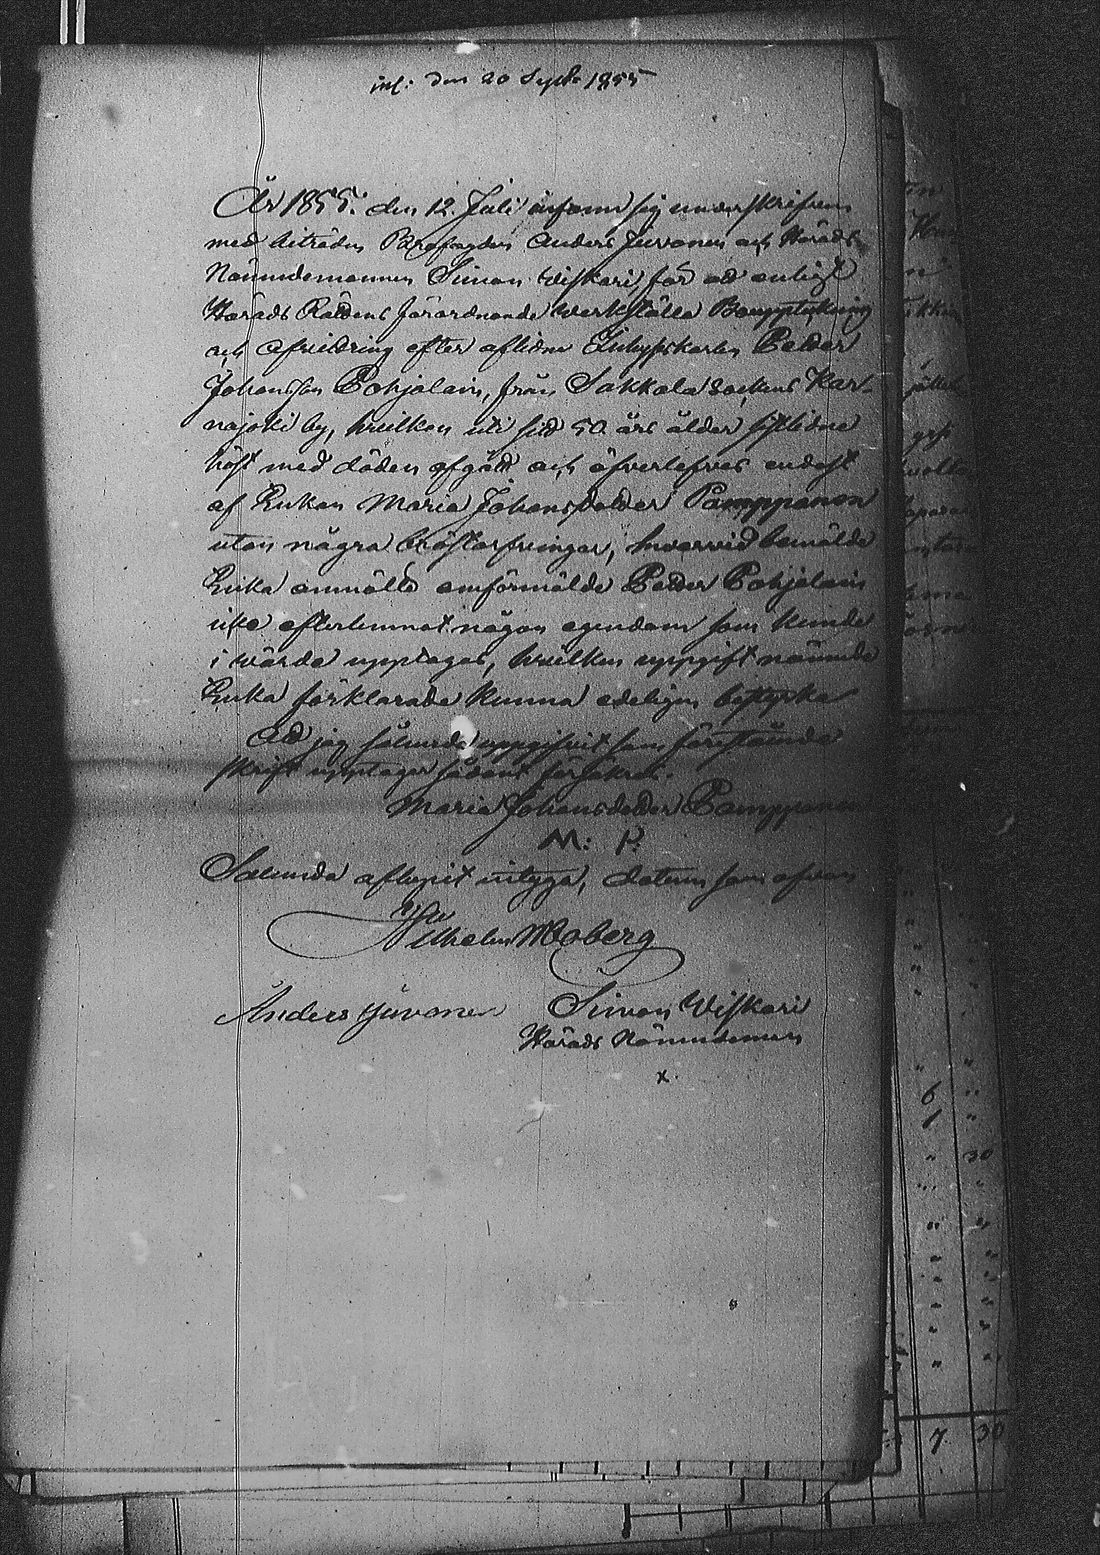 inl: den 20 Septbr 1855
År 1855. den 12 Juli infann sig underskrifven
med biträden Parofogden Anders Juvonen och Härads
Nämndemannen Simon Wiskari, för att enligt
Härads Rättens förordnande werkställa Bouppteckning
och afvittring efter aflidne Inhyseskarlen Petter
Johansson Pohjolain, från Sakkola Sockens Kar-
najoki by, hvilken uti sitt 50 års ålder sistlidne
höst med döden afgått och öfverlefves endast
af Enkan Maria Johansdotter Pamppanen
utan några bröstarfvingar, hvarvid bemälde
Enka anmälte omförmälde Petter Pohjolain
icke efterlemnat någon egendom som kunde
i wärde upptagas, hvilken uppgift nämnde
Enka förklarade kunna edeligen bestyrka
At jag sålunda uppgifvit som förestående
skrift upptager sådant försäkras.
Maria Johansdotter Pamppanen
M: P.
Sålunda aflupit intyga, datum som ofvan
Wilhelm Moberg
Anders Juvonen Simon Wiskari
Härads Nämndeman
x.
6 "
1 "
" 30
7 30